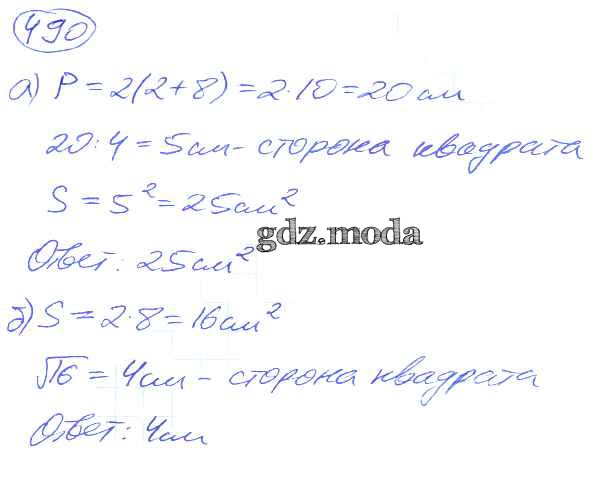 490
а) P = 2(2+8) = 2·10 = 20 см
20:4 = 5см - сторона квадрата
S = 5² = 25см²
gdz.moda
Ответ: 25см²
б) S = 2·8 = 16см²
√16 = 4см - сторона квадрата
Ответ: 4см